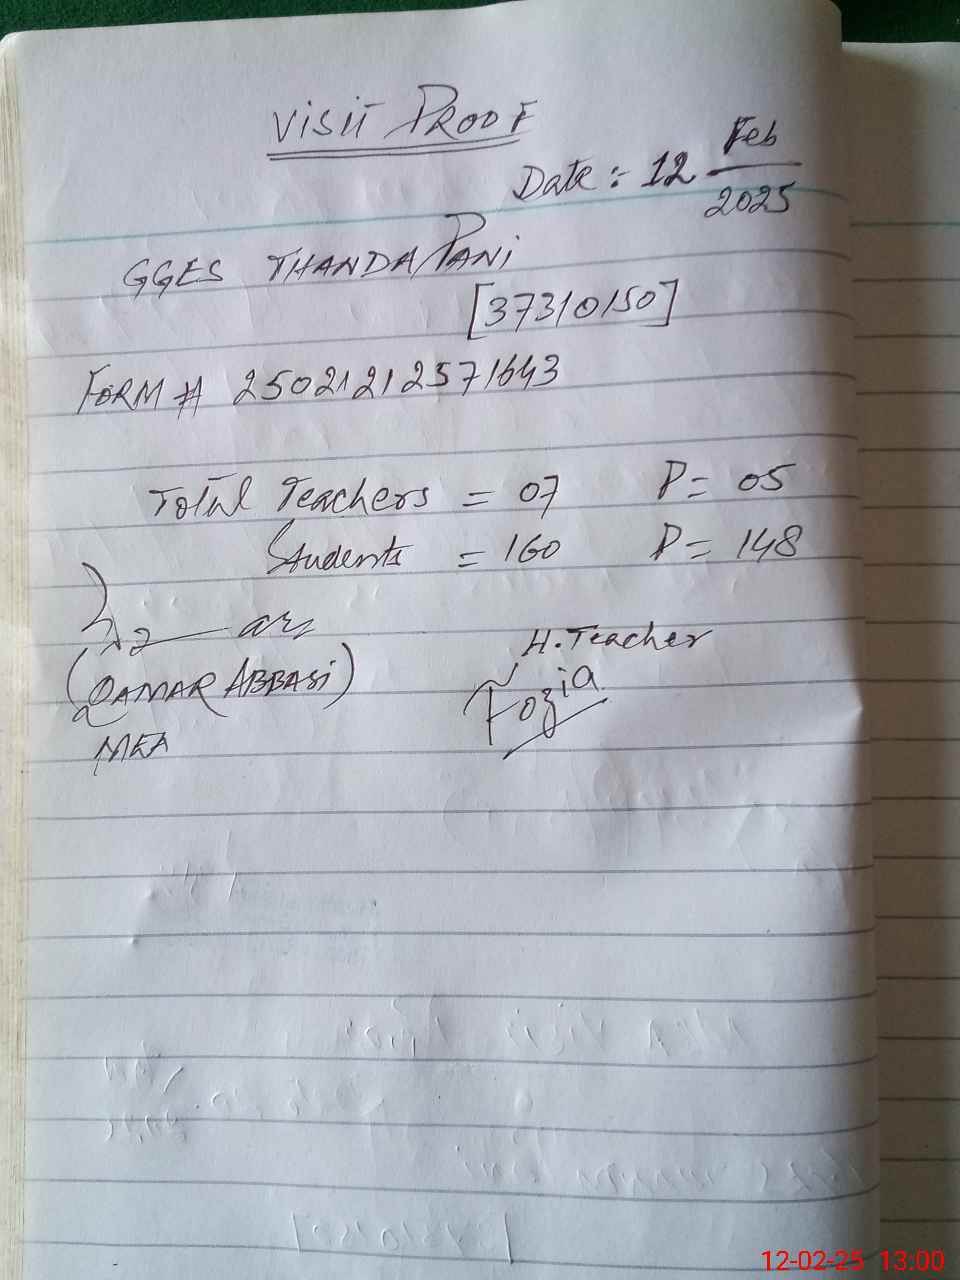 VISIT PROOF
Date :- 12 Feb
2025
GGES THANDA PANI
[37310150]
FORM # 25021212571643
Total Teachers = 07 P = 05
Students = 160 P = 148
H. Teacher
(QAMAR ABBASI)
Fozia
MEA
12-02-25 13:00